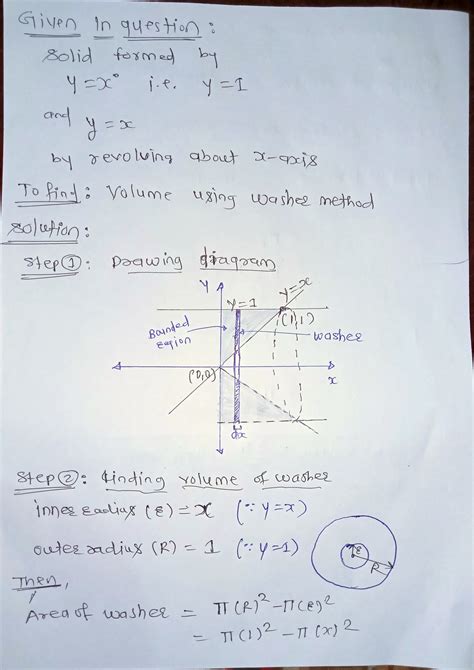 Given in question:
solid formed by
y = x⁰ i.e. y = 1
and y = x
by revolving about x-axis
To find: Volume using washer method
solution:
Step ①: Drawing diagram
y
y=1
y=x
(1,1)
Bounded
region
washer
(0,0)
x
dx
Step ②: finding volume of washer
inner radius (r) = x (∵ y=x)
outer radius (R) = 1 (∵ y=1)
r
R
Then,
Area of washer = π(R)² - π(r)²
= π(1)² - π(x)²